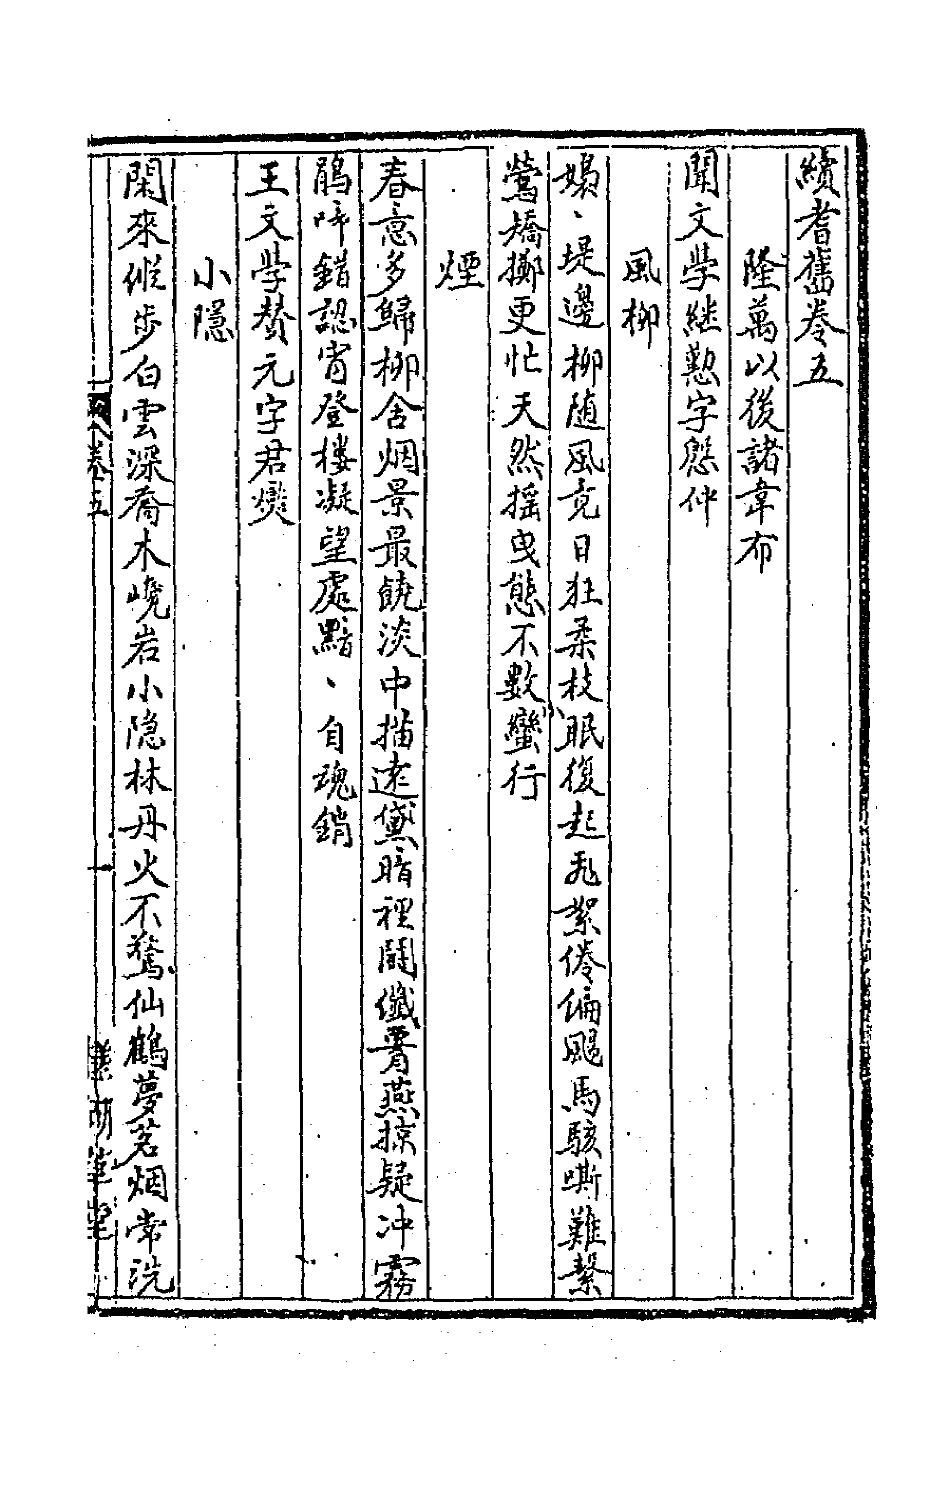 續耆舊卷五
隆萬以後諸韋布
聞文學継勲字慇仲
風栁
嫋、堤邊栁随風竟日狂柔枝眠復起飛絮倦偏颺馬駭嘶難繫
鶯嬌擲更忙天然摇曳態不數蠻行
煙
春意多歸栁舍烟景最饒淡中描逺黛暗裡鬪纖膏燕掠疑冲霧
鵑啼錯認宵登樓凝望處黯、自魂銷
王文學賛元字君爕
小隱
閑來縱步白雲深喬木巉岩小隐林丹火不驚仙鶴夢茗烟常洗
卷五
一
湖草堂